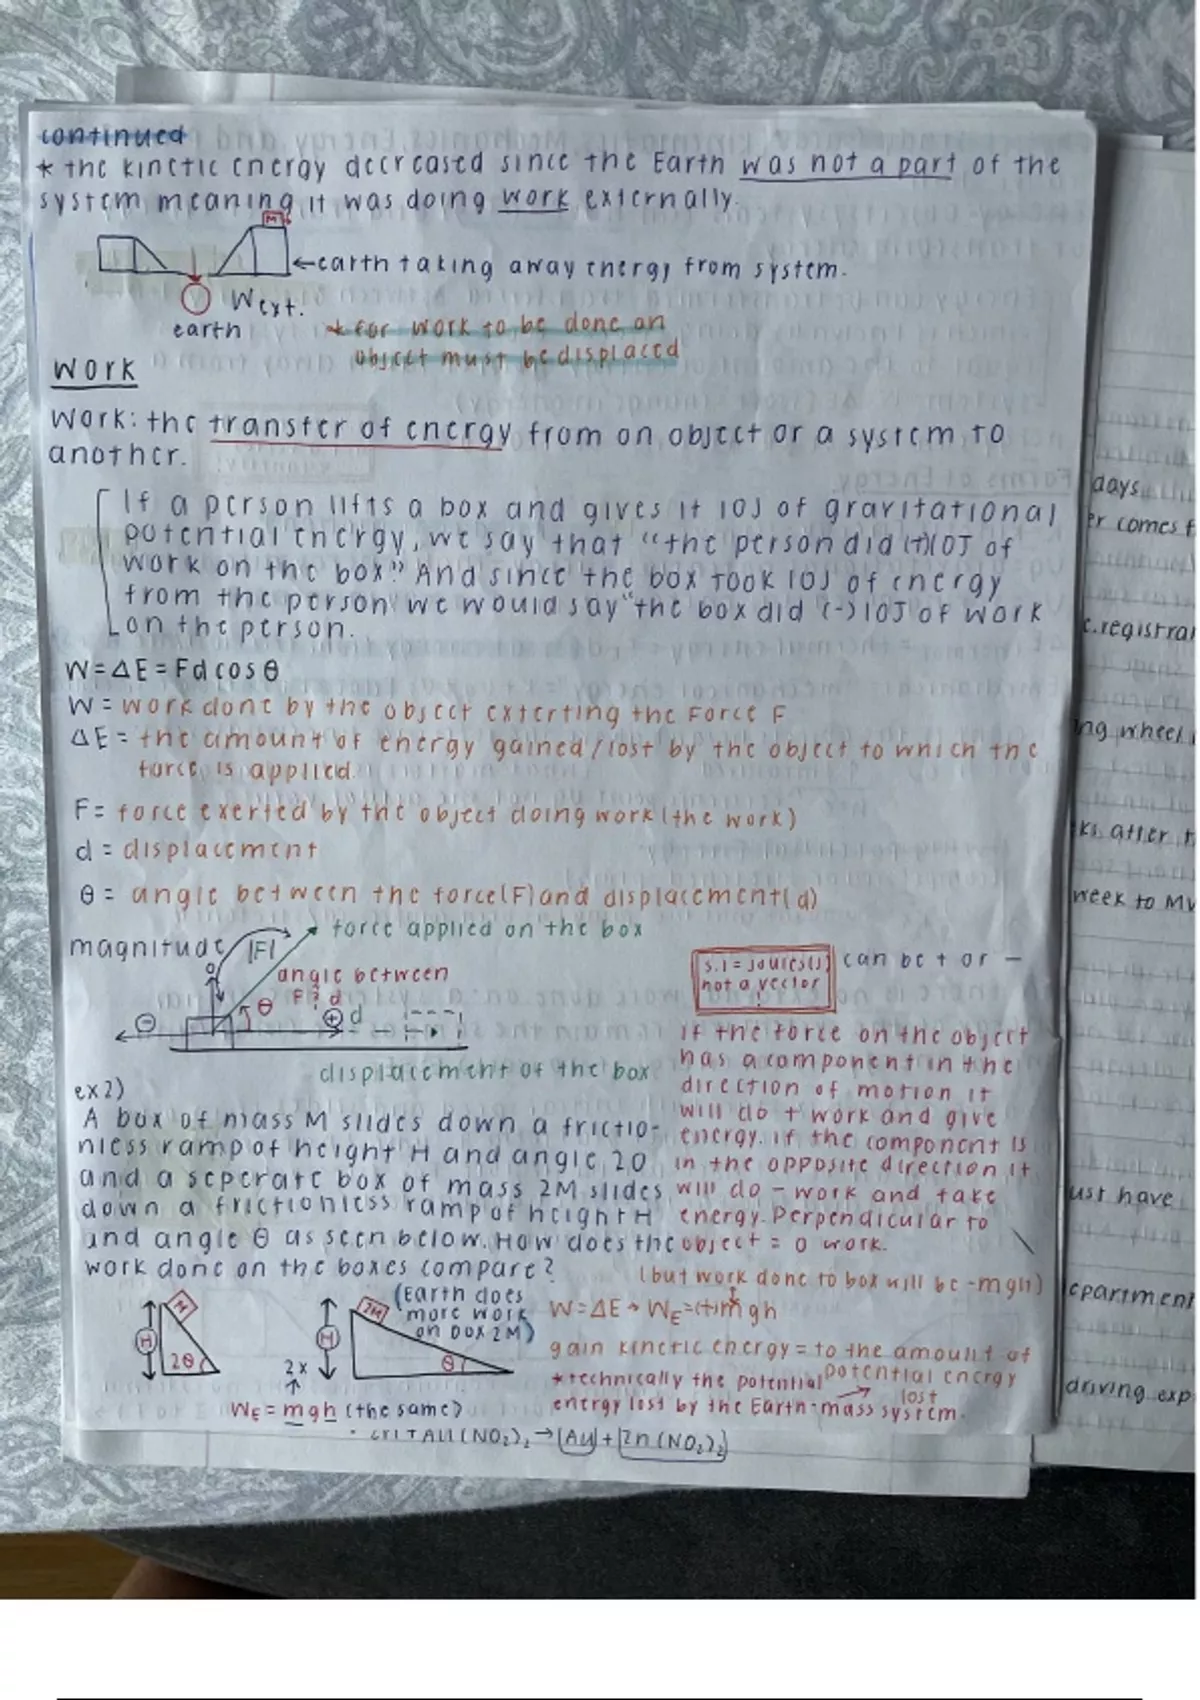 continued
* the kinetic energy decreased since the Earth was not a part of the
system meaning it was doing work externally.
M
←earth taking away energy from system.
Wext.
earth
* for work to be done an
object must be displaced
Work
Work: the transfer of energy from on object or a system to
another.
If a person lifts a box and gives it 10J of gravitational
potential energy, we say that "the person did (+)10J of
work on the box." And since the box took 10J of energy
from the person we would say "the box did (-)10J of work
on the person.
W = ΔE = Fd cos θ
W = work done by the object exterting the Force F
ΔE = the amount of energy gained/lost by the object to which the
force is applied.
F = force exerted by the object doing work (the work)
d = displacement
θ = angle between the force(F) and displacement(d)
force applied on the box
magnitude |F|
angle between
F & d
θ
0
⊖
⊕ d
displacement of the box
S.I = joules(J)
not a vector
!
can be + or −
If the force on the object
has a component in the
direction of motion it
will do + work and give
energy. if the component is
in the opposite direction it
will do − work and take
energy. Perpendicular to
object = 0 work.
ex2)
A box of mass M slides down a frictio-
nless ramp of height H and angle 2θ
and a seperate box of mass 2M slides
down a frictionless ramp of height H
and angle θ as seen below. How does the
work done on the boxes compare?
(but work done to box will be -mgh)
M
H
2θ
2x
H
2M
θ
(Earth does
more work
on box 2M)
WE = mgh (the same)
W = ΔE → WE = (+)mgh
gain kinetic energy = to the amount of
potential energy
lost
*technically the potential
energy lost by the Earth-mass system.
(NO₂)₂ → [Au] + [Zn(NO₂)₂]
days
er comes f
c.registrar
ng wheel
ks after
week to My
ust have
epartment
driving exp